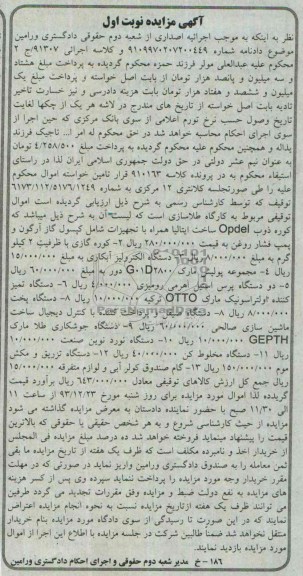 آگهی مزایده نوبت اول
نظر به اینکه به موجب اجرائیه اصداری از شعبه دوم حقوقی دادگستری ورامین
موضوع دادنامه شماره ۹۱۰۹۹۷۰۲۰۷۲۰۰۴۴۹ و کلاسه اجرائی ۹۱۳۰۷/ج ۲
محکوم علیه عبدالعلی مولر فرزند حمزه محکوم گردیده به پرداخت مبلغ هشتاد
و سه میلیون و پانصد هزار تومان از بابت اصل خواسته و پرداخت مبلغ یک
میلیون و ششصد و هفتاد هزار تومان بابت هزینه دادرسی و نیز خسارت تاخیر
تادیه بابت اصل خواسته از تاریخ های مندرج در لاشه هر یک از چکها لغایت
تاریخ وصول حسب نرخ تورم اعلامی از سوی بانک مرکزی که حین اجرا از
سوی اجرای احکام محاسبه خواهد شد در حق محکوم له امر ا... تاجیک فرزند
یداله و همچنین محکوم علیه محکوم گردیده به پرداخت مبلغ ۴/۲۵۸/۵۰۰ تومان
به عنوان نیم عشر دولتی در حق دولت جمهوری اسلامی ایران لذا در راستای
استیفاء محکوم به در پرونده کلاسه ۹۱۰۱۶۳ قرار تامین خواسته اموال محکوم
علیه را طی صورتجلسه کلانتری ۱۲ مرکزی به شماره ۶۱۷۳/۱۱۲/۵۱۷۶/۱۲۴۹
توقیف که توسط کارشناس رسمی به شرح ذیل ارزیابی گردیده است اموال
توقیفی مربوط به کارگاه طلاسازی است که لیست آن به شرح ذیل میباشد ۱-
کوره ذوب Opdel ساخت ایتالیا همراه با تجهیزات شامل کپسول گاز آرگون و
پمپ فشار روغن به قیمت ۲۸۰/۰۰۰/۰۰۰ ریال ۲- کوره گازی با ظرفیت ۲ کیلو
گرم به مبلغ ۸/۰۰۰/۰۰۰ ریال ۳- دستگاه الکترولیز آبکاری به مبلغ ۱۵/۰۰۰/۰۰۰
ریال ۴- مجموعه پولیش مارک G۰۱D۲۸۰۰ دور به مبلغ ۶۰/۰۰۰/۰۰۰ ریال
۵- دو دستگاه پرس استیل اهرمی رومیزی ۴/۰۰۰/۰۰۰ ریال ۶- دستگاه تمیز
کننده اولتراسونیک مارک OTTO ترکیه ۱۰/۰۰۰/۰۰۰ ریال ۷- دستگاه پخت
۸/۰۰۰/۰۰۰ ریال ۸- دستگاه با کنترل دیجیتال ساخت
ماشین سازی صالحی ۶۰/۰۰۰/۰۰۰ ریال ۹- دستگاه جوشکاری طلا مارک
GEPTH ۱۰/۰۰۰/۰۰۰ ریال ۱۰- دستگاه نورد نوین صنعت ۱۰/۰۰۰/۰۰۰
ریال ۱۱- دستگاه مخلوط کن ۴۰/۰۰۰/۰۰۰ ریال ۱۲- دستگاه تزریق و مکش
موم ۱۵۰/۰۰۰/۰۰۰ ریال ۱۳- گام صندوق کولر آبی و لوازم متفرقه ۱۵/۰۰۰/۰۰۰
ریال جمع کل ارزش کالاهای توقیفی معادل ۶۴۳/۰۰۰/۰۰۰ ریال برآورد قیمت
گردیده لذا اموال مورد مزایده برای روز شنبه مورخ ۹۳/۱۲/۲۳ از ساعت ۱۱
الی ۱۱/۳۰ صبح با حضور نماینده دادستان به معرض مزایده گذاشته می شود
مزایده از حیث کارشناسی شروع و به هر شخص حقیقی یا حقوقی که بالاترین
قیمت را پیشنهاد مینماید فروخته خواهد شد ده درصد مبلغ مزایده فی المجلس
از خریدار اخذ و نامبرده مکلف است که ظرف یک هفته از تاریخ مزایده ما بقی
ثمن معامله را به صندوق دادگستری ورامین واریز نماید در صورتی که در مهلت
مقرر خریدار وجه مورد مزایده را پرداخت ننماید سپرده وی پس از کسر هزینه
های مزایده به نفع دولت ضبط و مزایده وفق مقررات تجدید می گردد طرفین
می توانند ظرف یک هفته ازتاریخ مزایده نسبت به نحوه انجام مزایده اعتراض
نمایند که در این صورت تا رسیدگی از سوی دادگاه مورد مزایده بنام خریدار
منتقل نخواهد شد ضمنا طالبین شرکت در جلسه مزایده با اطلاع این اجرا از اموال
مورد مزایده بازدید نمایند.
۱۸۶- خ مدیر شعبه دوم حقوقی و اجرای احکام دادگستری ورامین